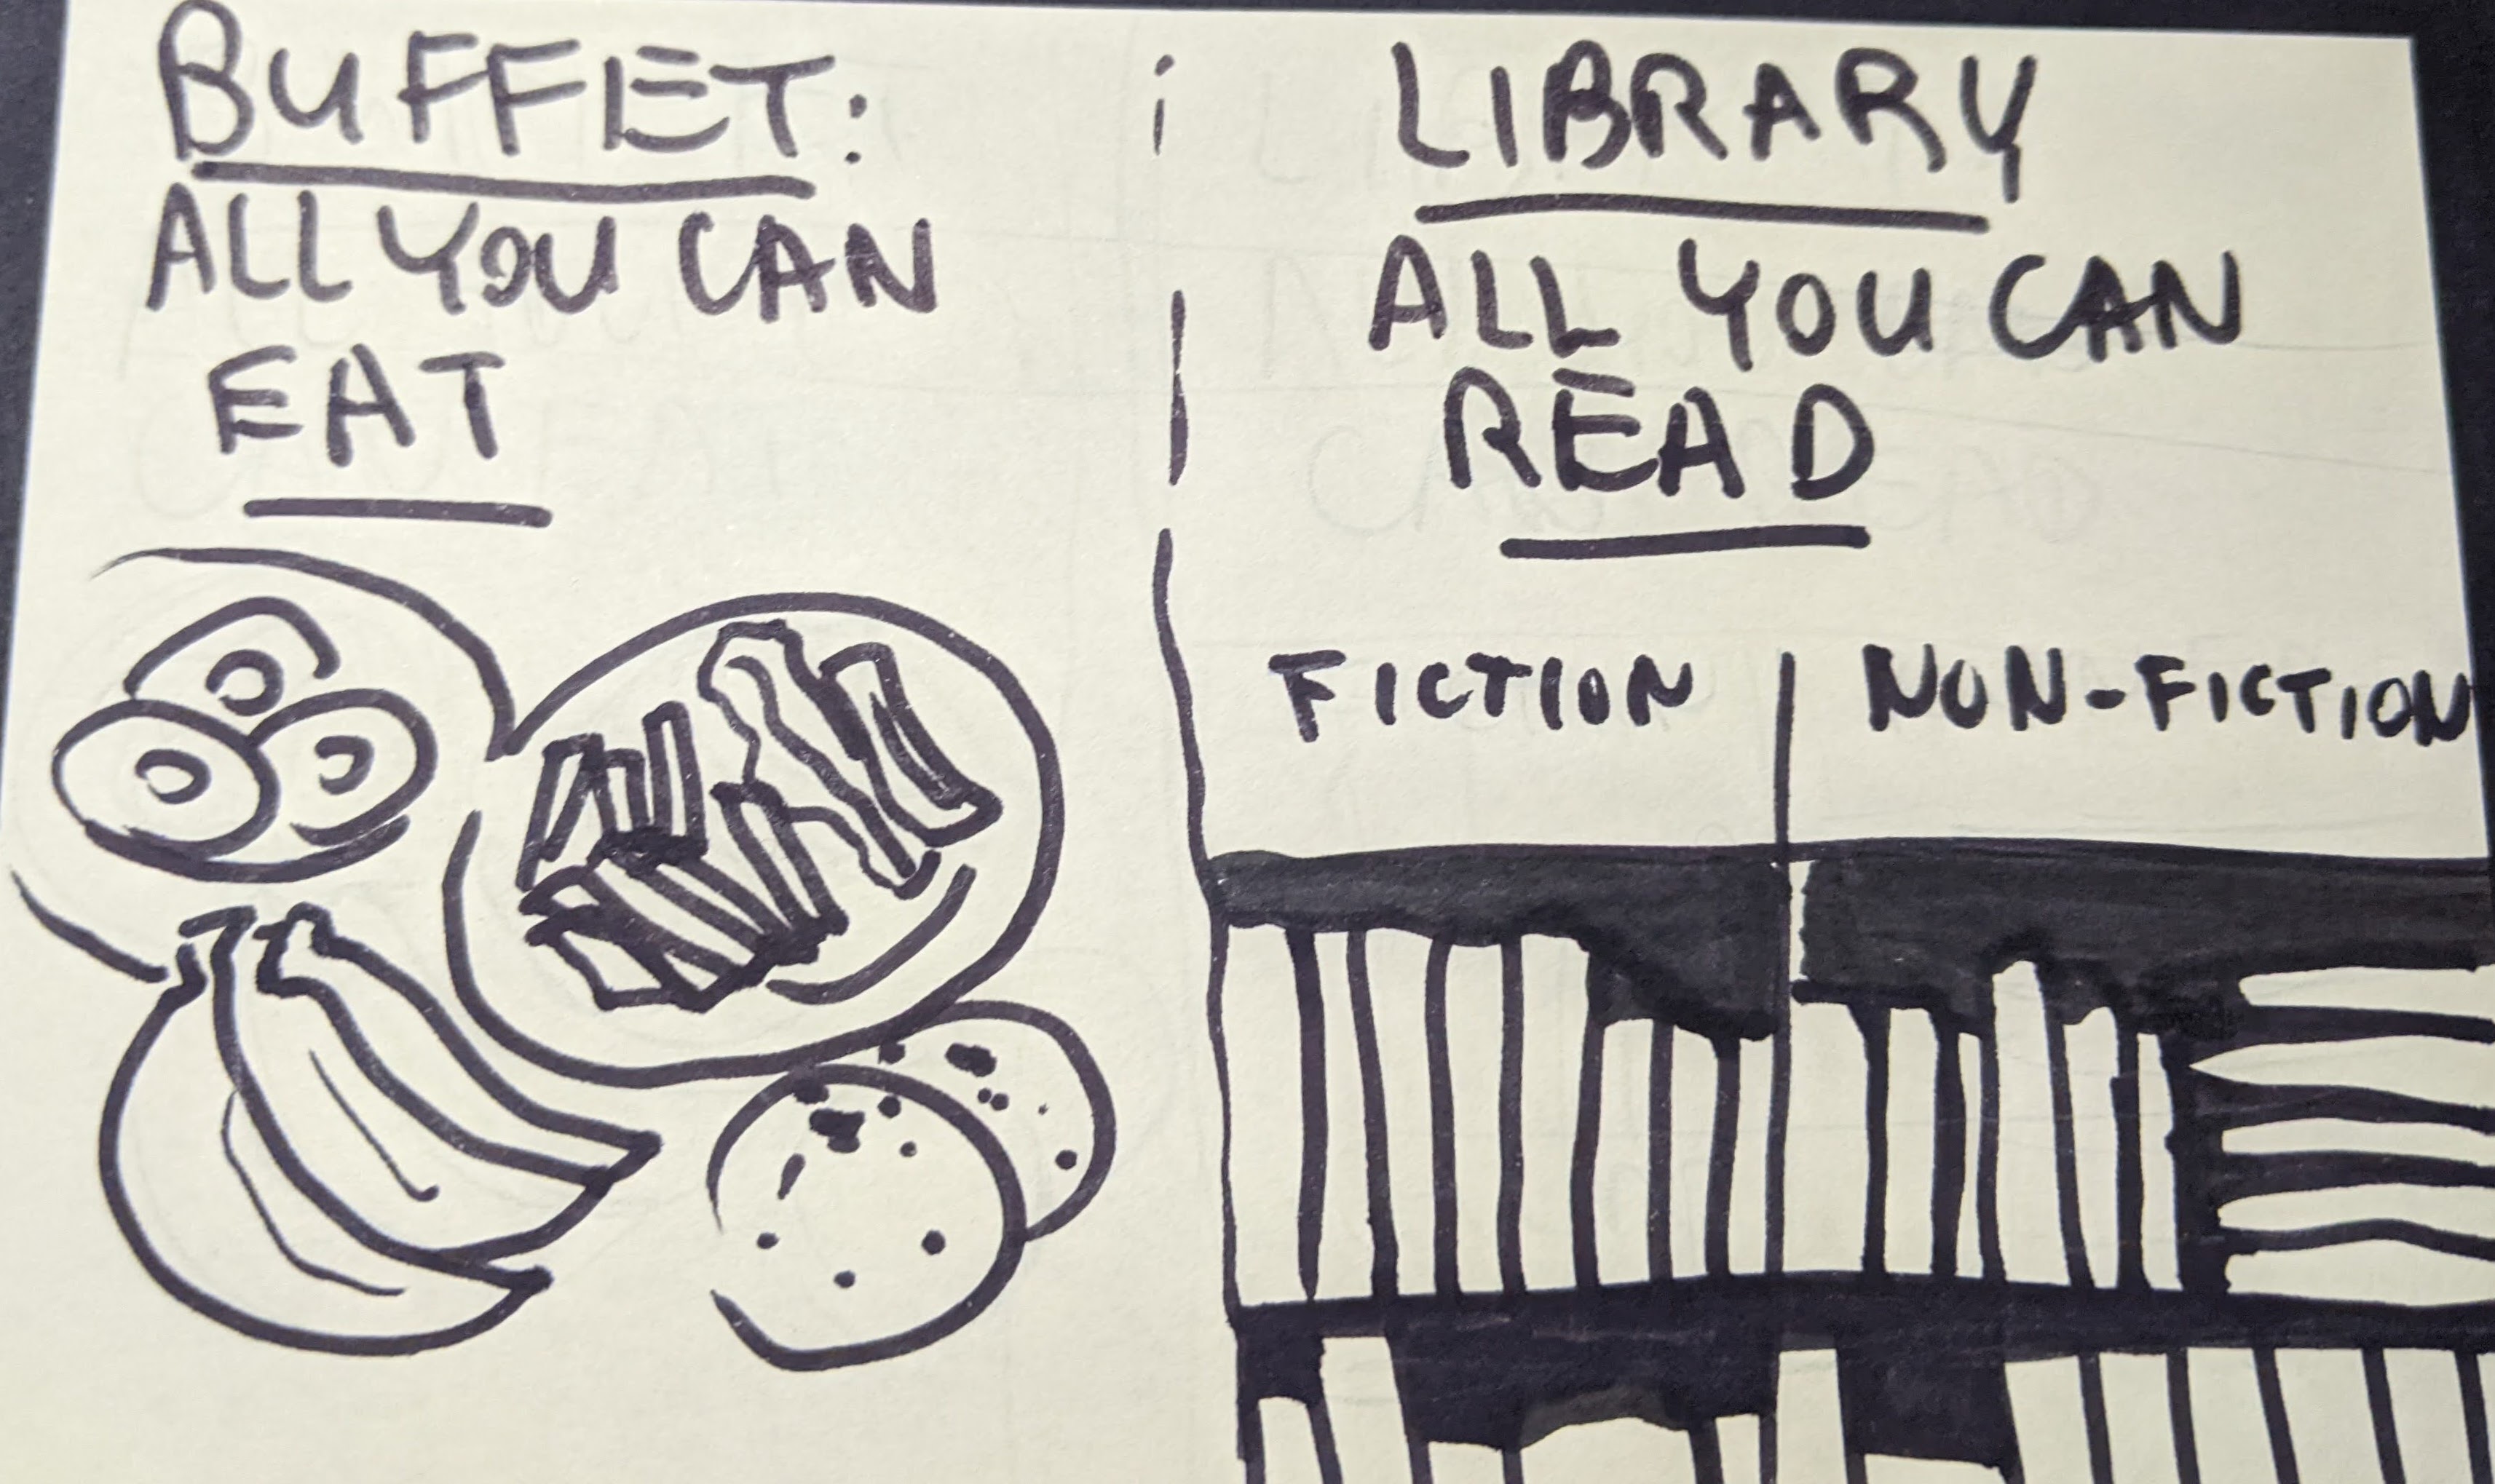 BUFFET:
ALL YOU CAN
EAT
LIBRARY
ALL YOU CAN
READ
FICTION
NON-FICTION